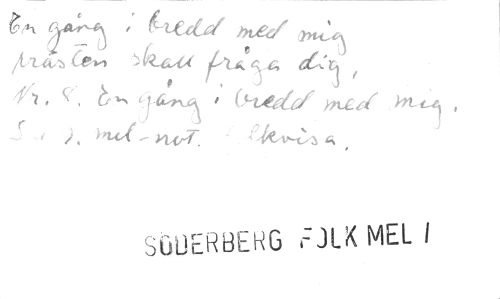 En gång i bredd med mig
prästen skall fråga dig,
Nr. 8. En gång i bredd med mig.
mel-not. Folkvisa.
SÖDERBERG FOLK MEL I